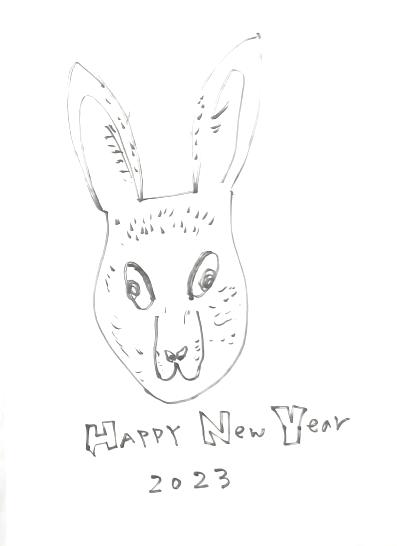 Happy New Year
2023